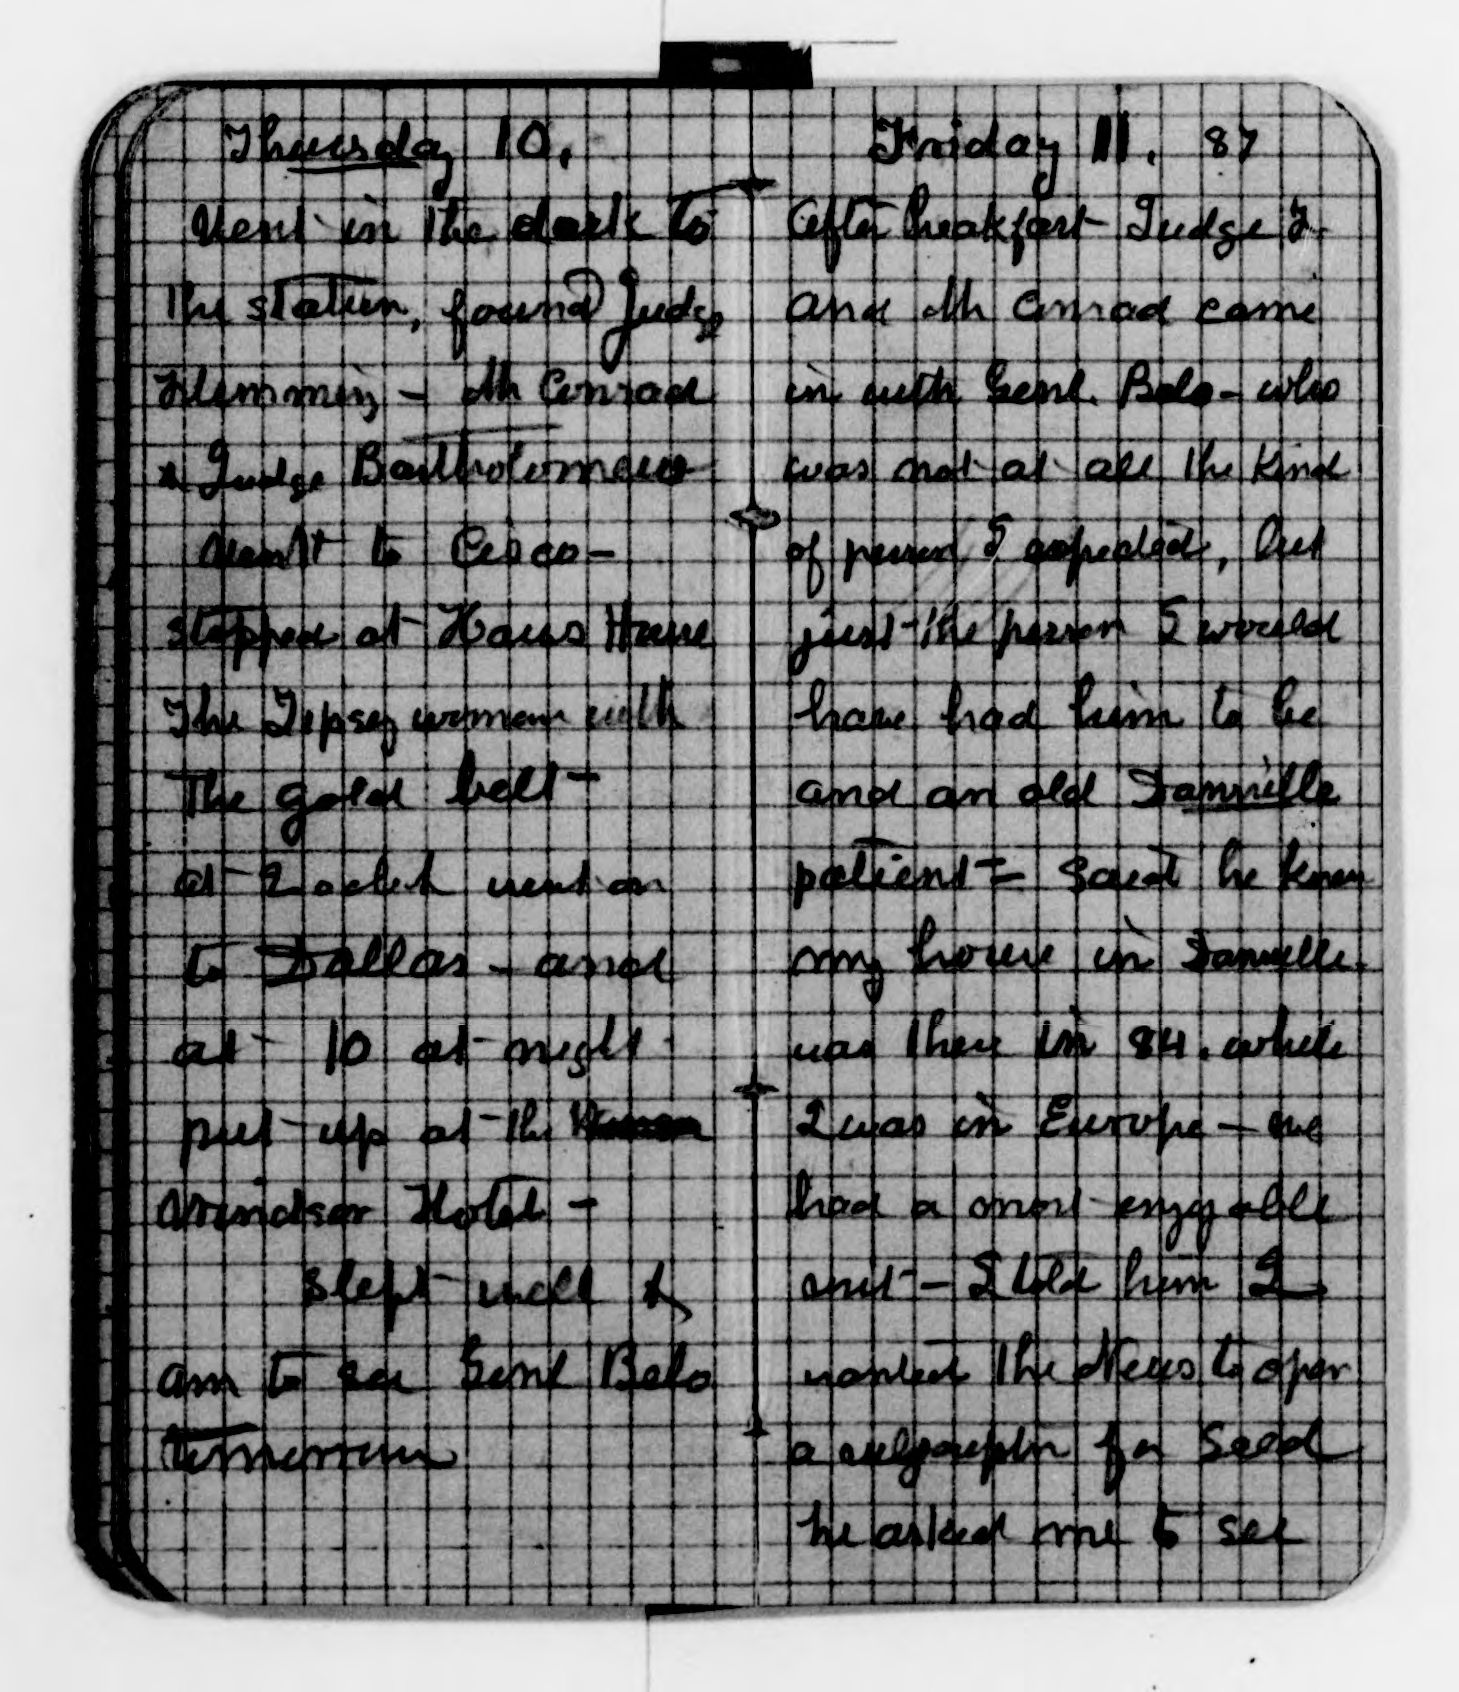 Thursday 10.
Went in the dark to
the station, found Judge
Flemming - Mr Conrad
& Judge Bartholomew
went to Cisco -
stopped at House
The Gipsey woman with
the gold belt -
at 2 oclock went on
to Dallas - and
at 10 at night
put up at the
Windsor Hotel -
Slept well &
am to see Genl Belo
tomorrow
Friday 11. 87
After breakfast Judge F.
and Mr Conrad came
in with Genl. Belo - who
was not at all the kind
of person I expected, but
just the person I would
have had him to be
and an old Dansville
patient - Said he knew
my house in Dansville.
was there in 84. while
I was in Europe - we
had a most enjoyable
visit - I told him I
wanted the News to open
a for Seed
he asked me to see